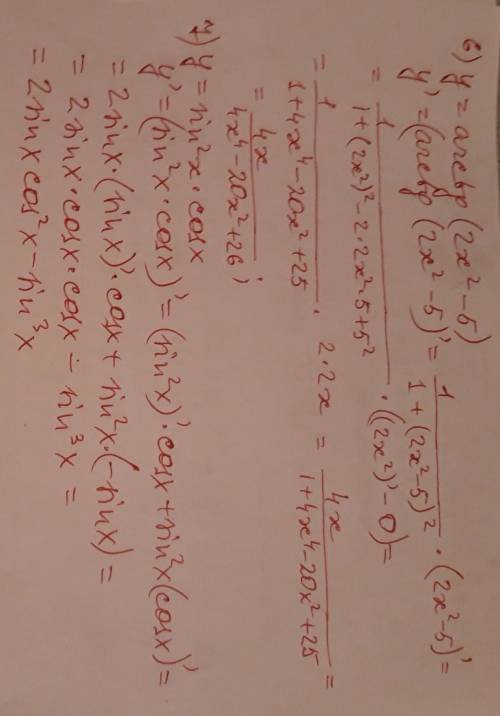 6) y = arctg (2x² - 5)
y' = (arctg (2x² - 5)' = 1/(1 + (2x² - 5)²) · (2x² - 5)' =
= 1/(1 + (2x²)² - 2·2x²·5 + 5²) · ((2x²)' - 0) =
= 1/(1 + 4x⁴ - 20x² + 25) · 2·2x = 4x/(1 + 4x⁴ - 20x² + 25) =
= 4x/(4x⁴ - 20x² + 26) ;
7) y = sin²x · cosx
y' = (sin²x · cosx)' = (sin²x)' · cosx + sin²x (cosx)' =
= 2sinx · (sinx)' · cosx + sin²x · (-sinx) =
= 2sinx · cosx · cosx - sin³x =
= 2sinx cos²x - sin³x